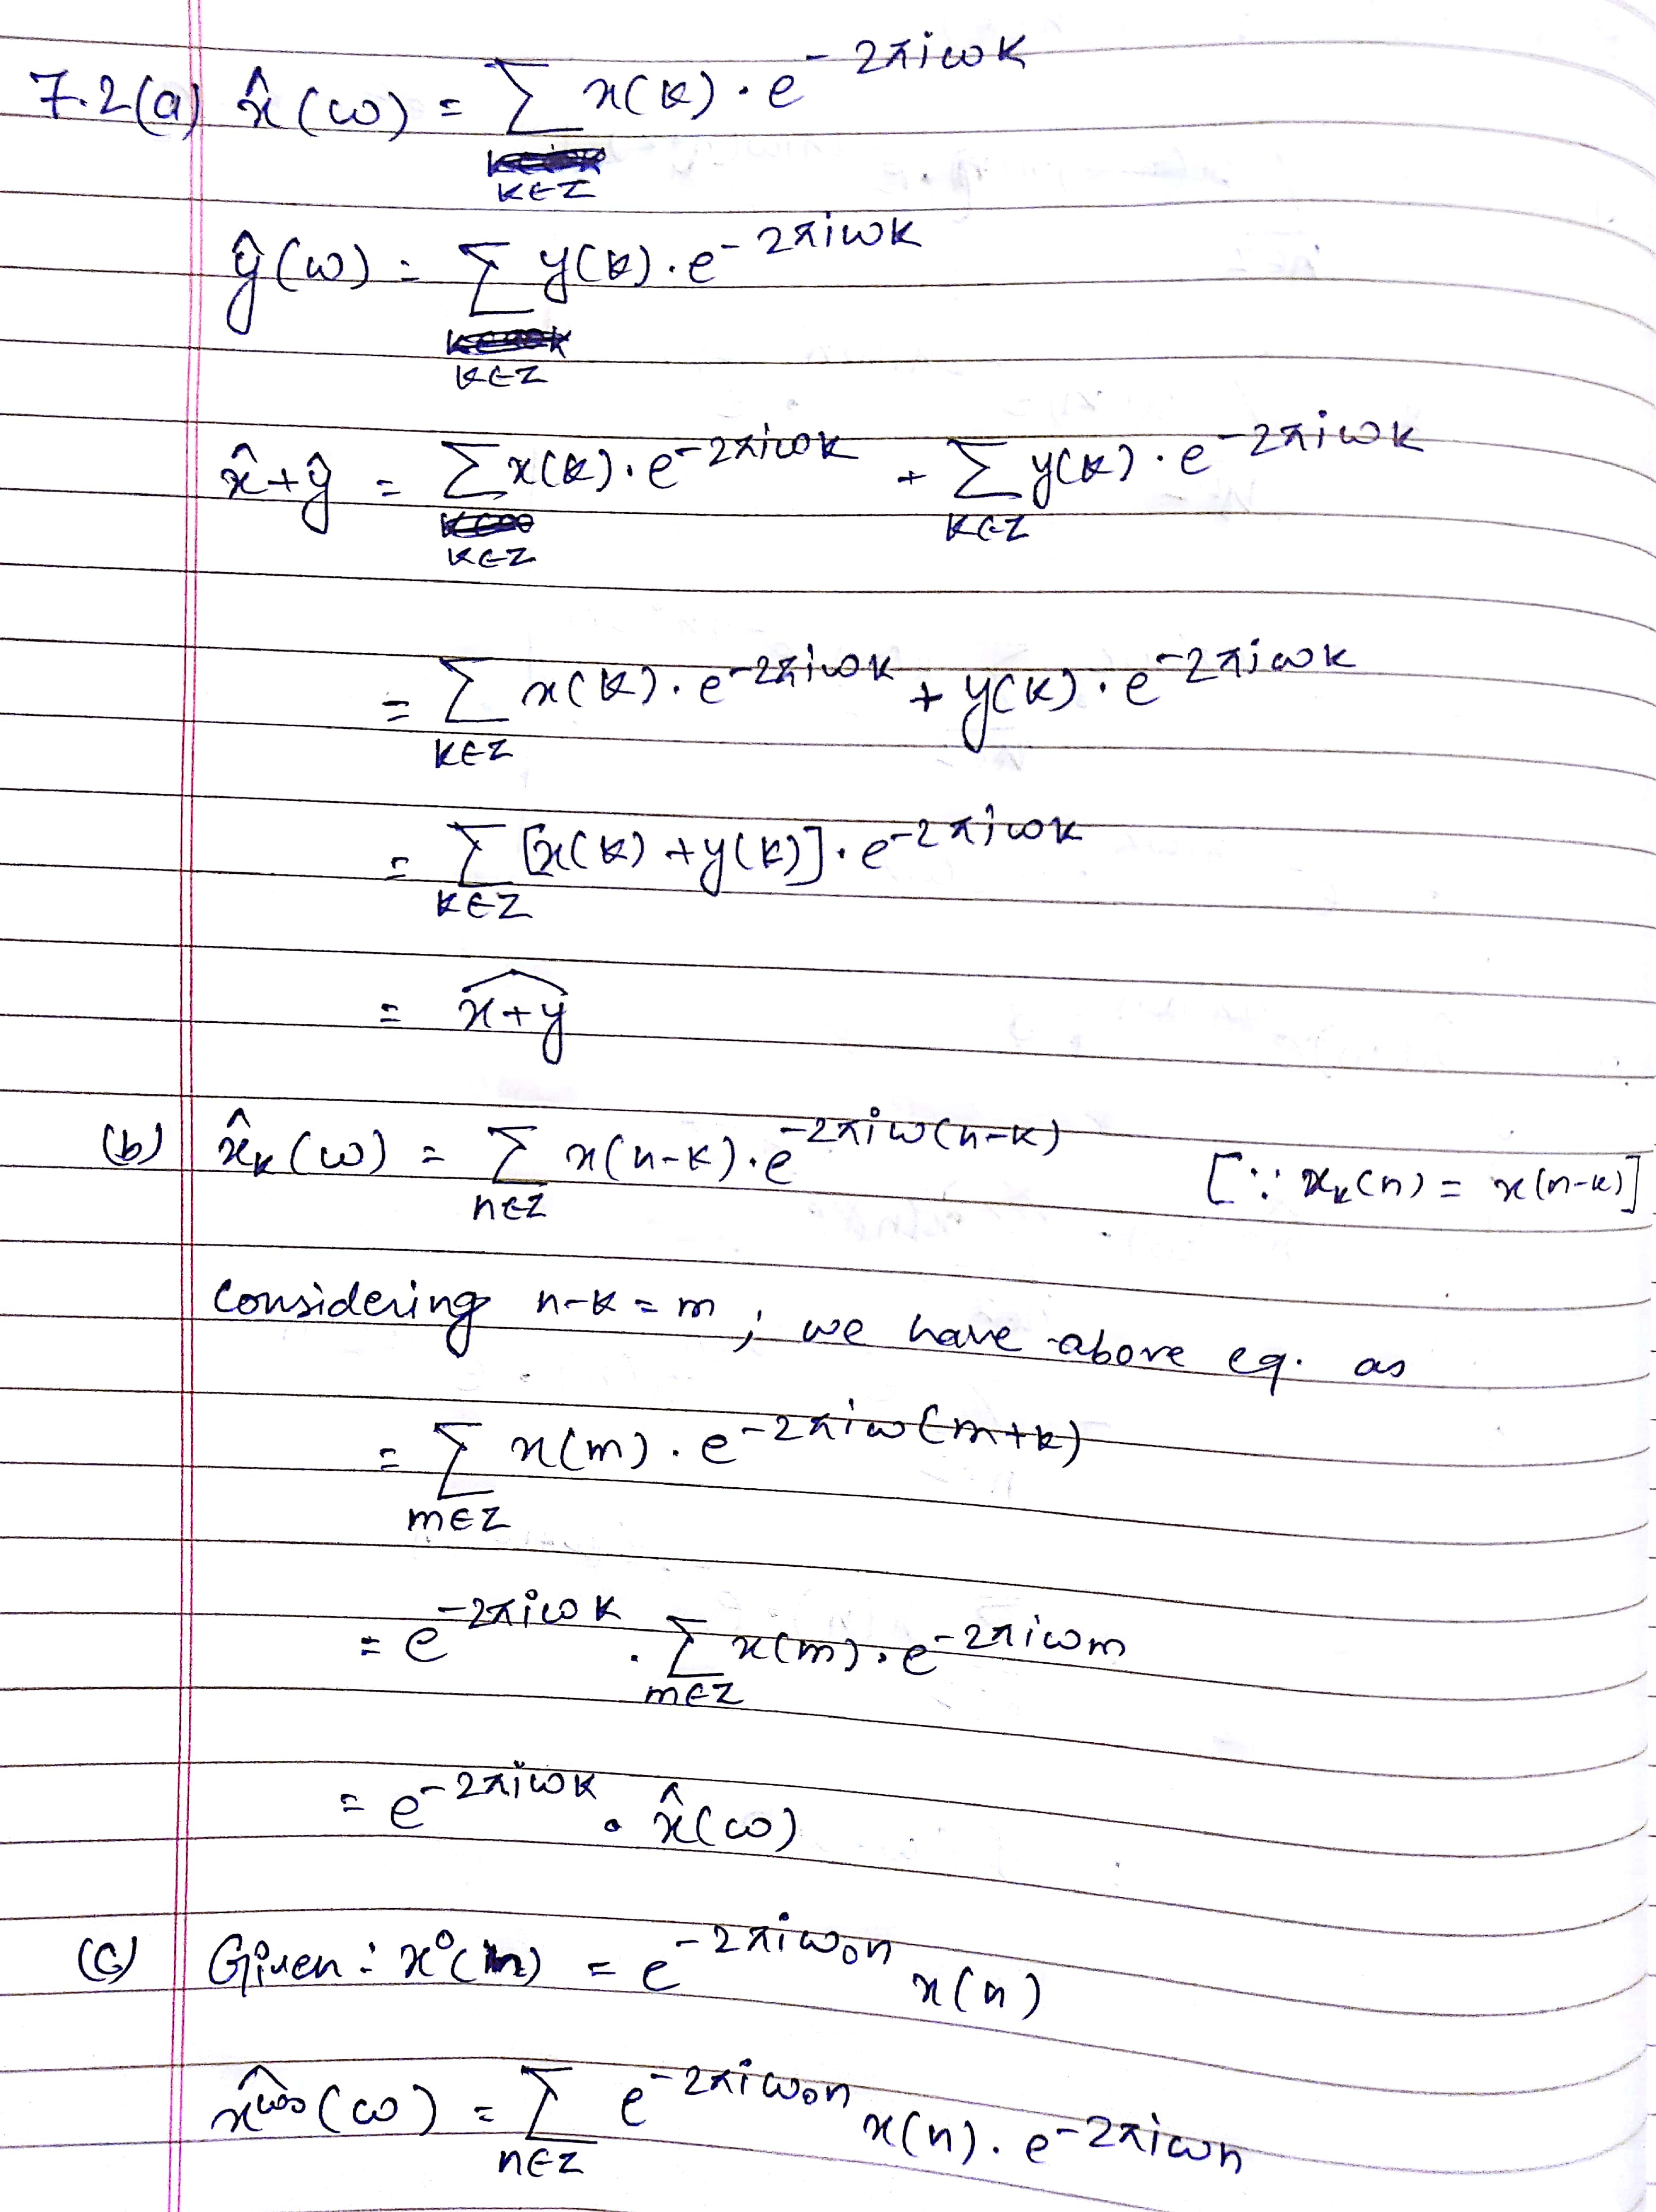 7.2(a) x̂(ω) = Σ_{k∈Z} x(k)·e^{-2πiωk}
ŷ(ω) = Σ_{k∈Z} y(k)·e^{-2πiωk}
x̂+ŷ = Σ_{k∈Z} x(k)·e^{-2πiωk} + Σ_{k∈Z} y(k)·e^{-2πiωk}
= Σ_{k∈Z} x(k)·e^{-2πiωk} + y(k)·e^{-2πiωk}
= Σ_{k∈Z} [x(k)+y(k)]·e^{-2πiωk}
= \widehat{x+y}
(b) x̂_k(ω) = Σ_{n∈Z} x(n-k)·e^{-2πiω(n-k)} [∵ x_k(n) = x(n-k)]
Considering n-k = m; we have above eq. as
= Σ_{m∈Z} x(m)·e^{-2πiω(m+k)}
= e^{-2πiωk}·Σ_{m∈Z} x(m)·e^{-2πiωm}
= e^{-2πiωk}·x̂(ω)
(c) Given: x⁰(n) = e^{-2πiω₀n} x(n)
(ω) = Σ_{n∈Z} e^{-2πiω₀n} x(n)·e^{-2πiωn}